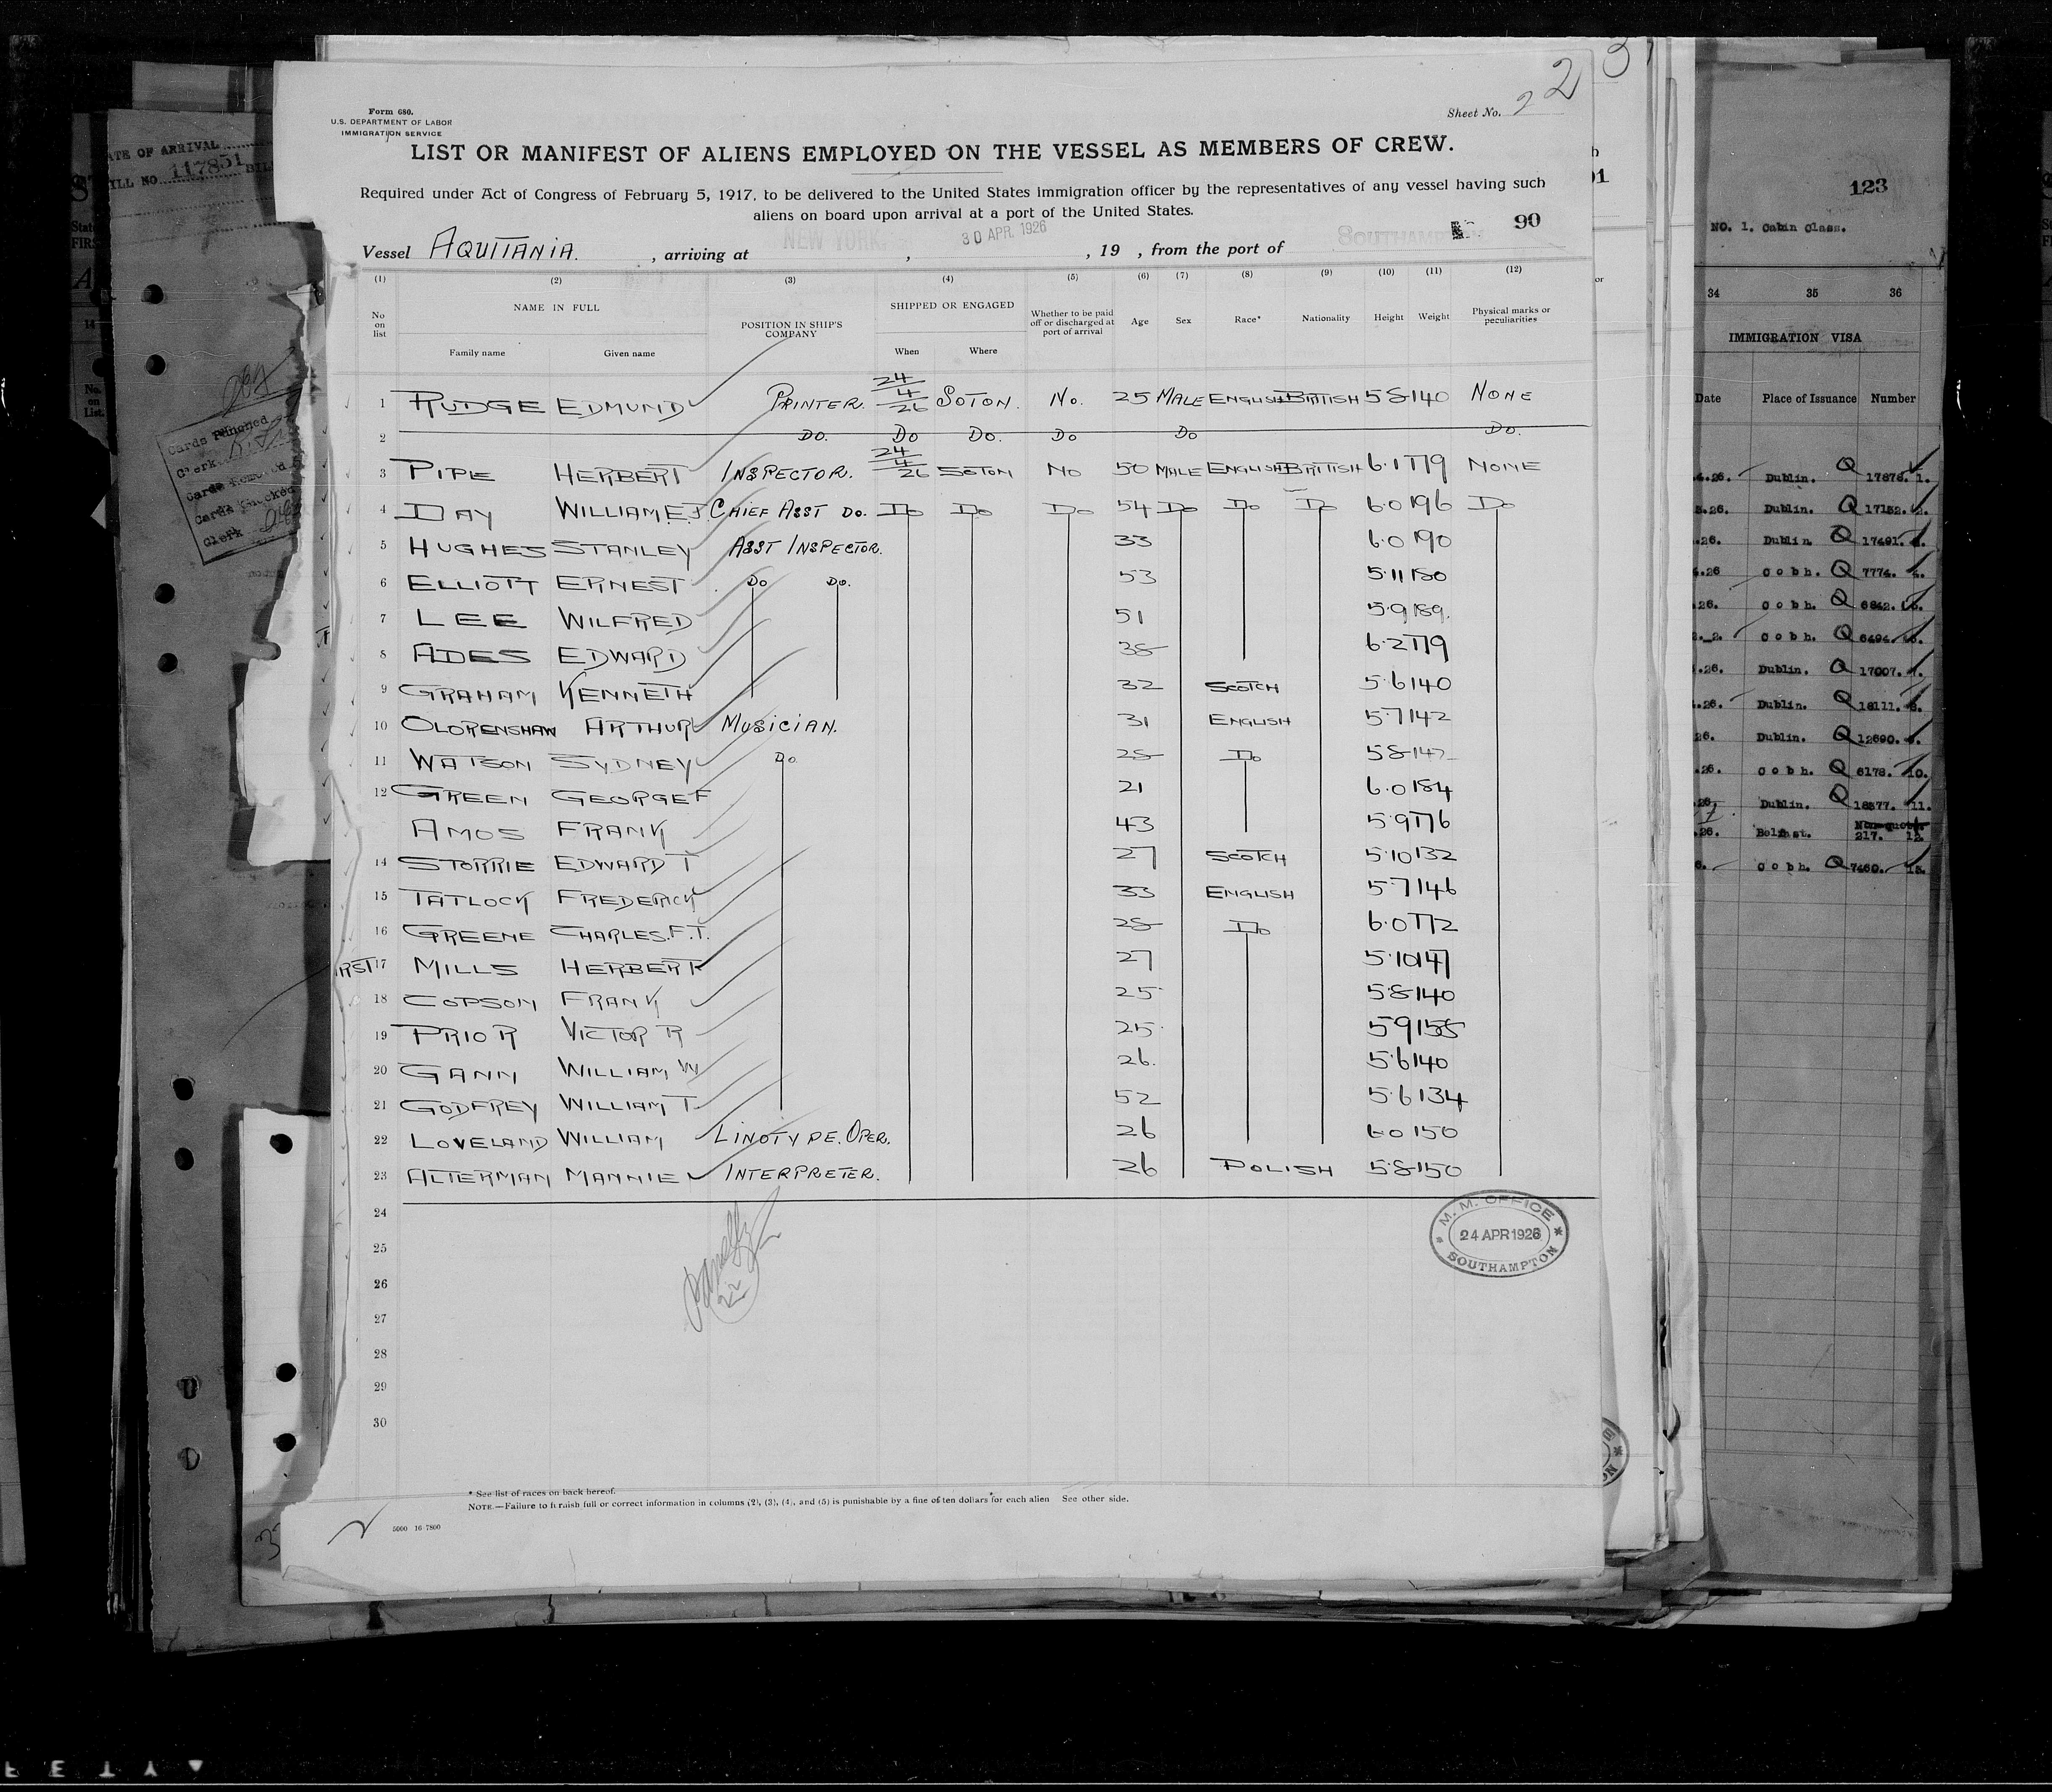 Form 680.
U.S. DEPARTMENT OF LABOR
IMMIGRATION SERVICE
Sheet No. 2
2
LIST OR MANIFEST OF ALIENS EMPLOYED ON THE VESSEL AS MEMBERS OF CREW.
Required under Act of Congress of February 5, 1917, to be delivered to the United States immigration officer by the representatives of any vessel having such
aliens on board upon arrival at a port of the United States.
90
Vessel AQUITANIA. , arriving at NEW YORK. , 30 APR. 1926 , 19 , from the port of SOUTHAMPTON
(1) (2) (3) (4) (5) (6) (7) (8) (9) (10) (11) (12)
No on list NAME IN FULL POSITION IN SHIP'S COMPANY SHIPPED OR ENGAGED Whether to be paid off or discharged at port of arrival Age Sex Race* Nationality Height Weight Physical marks or peculiarities
Family name Given name When Where
1 RUDGE EDMUND PRINTER. 24/4/26 SOTON. No. 25 MALE ENGLISH BRITISH 5 8 140 NONE
2 DO. DO DO. DO DO DO.
3 PIPE HERBERT INSPECTOR. 24/4/26 SOTON NO 50 MALE ENGLISH BRITISH 6.1 179 NONE
4 DAY WILLIAM E.J. CHIEF ASST DO. DO DO DO 54 DO DO DO 6.0 196 DO
5 HUGHES STANLEY ASST INSPECTOR. 33 6.0 190
6 ELLIOTT ERNEST DO DO. 53 5.11 180
7 LEE WILFRED 51 5.9 189.
8 ADES EDWARD 38 6.2 179
9 GRAHAM KENNETH 32 SCOTCH 5.6 140
10 OLORENSHAW ARTHUR MUSICIAN. 31 ENGLISH 5.7 142
11 WATSON SYDNEY DO. 28 DO 5 8 142
12 GREEN GEORGE F 21 6.0 184
AMOS FRANK 43 5.9 176
14 STORRIE EDWARD T 27 SCOTCH 5.10 132
15 TATLOCK FREDERICK 33 ENGLISH 5.7 146
16 GREENE CHARLES.F.T. 28 DO 6.0 172
17 MILLS HERBERT 27 5.10 147
18 COPSON FRANK 25 5.8 140
19 PRIOR VICTOR R 25. 5 9 158
20 GANN WILLIAM W 26. 5.6 140
21 GODFREY WILLIAM T 52 5.6 134
22 LOVELAND WILLIAM LINOTYPE. OPER. 26 6.0 150
23 ALTERMAN MANNIE INTERPRETER. 26 POLISH 5.8 150
24
25
26
27
28
29
30
M. M. OFFICE
24 APR 1926
SOUTHAMPTON
* See list of races on back hereof.
NOTE.—Failure to furnish full or correct information in columns (2), (3), (4), and (5) is punishable by a fine of ten dollars for each alien See other side.
5000 16 7800
DATE OF ARRIVAL
117851
Cards Punched
Clerk
Clerk
123
NO. 1. Cabin Class.
34 35 36
IMMIGRATION VISA
Date Place of Issuance Number
.26. Dublin. Q 17878. 1.
.26. Dublin. Q 17152. 2.
.26. Dublin. Q 17491.
.26 Cobh. Q 7774. 4.
.26. Cobh. Q 6842.
Cobh. Q 6494.
.26. Dublin. Q 17007.
.26. Dublin. Q 18111.
26. Dublin. Q 12690.
.26. Cobh. Q 6178. 10.
.26. Dublin. Q 18377. 11.
.26. Belfast. Non-quota 217. 12.
Cobh. Q 7460. 13.